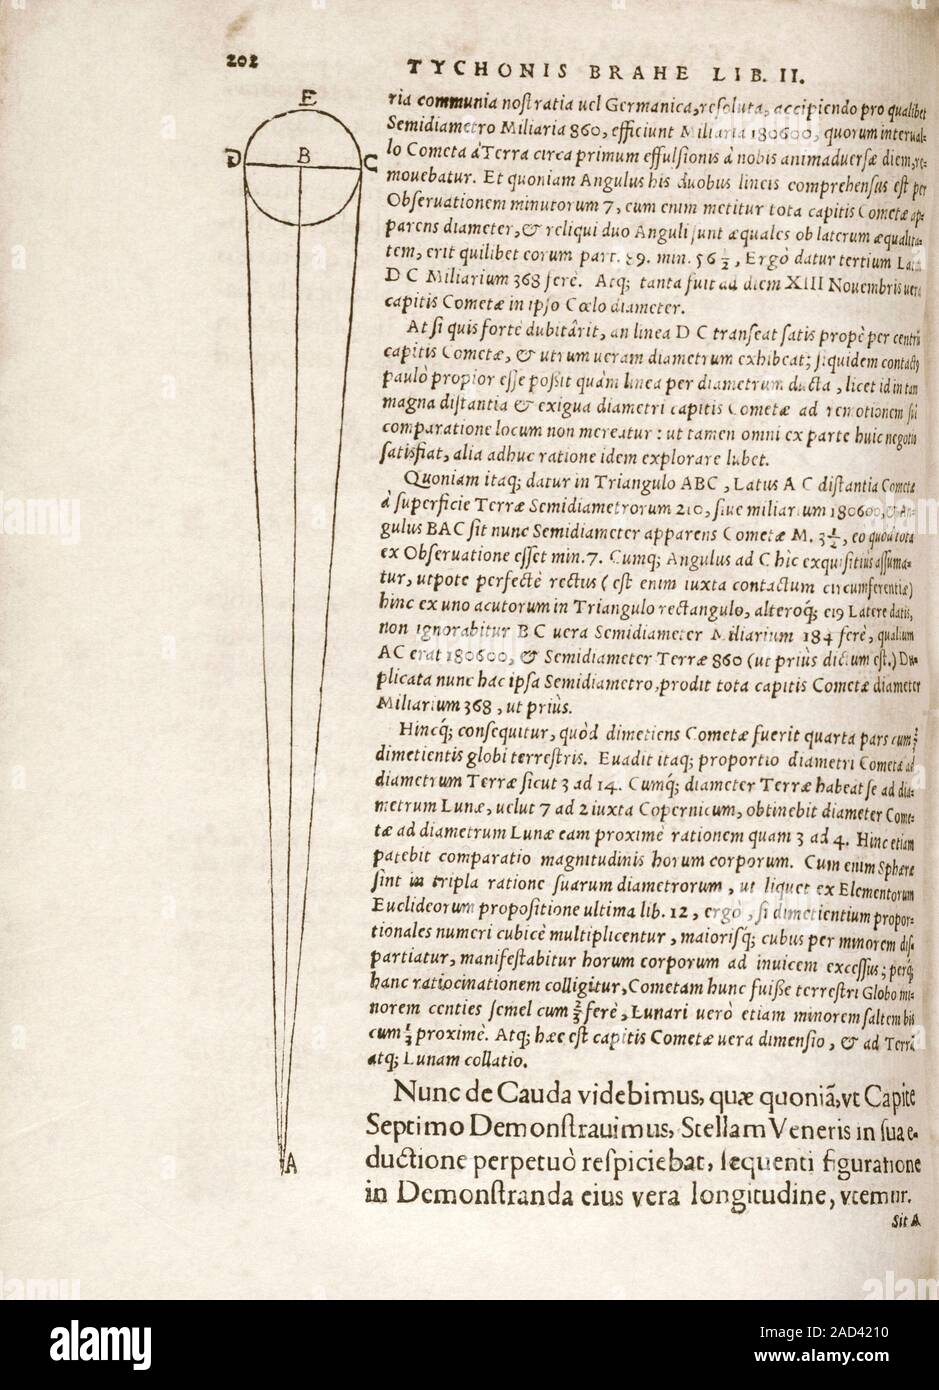 202
TYCHONIS BRAHE LIB. II.
E
D B C
A
ria communia noſtratia uel Germanica, reſoluta, accipiendo pro qualibet
Semidiametro Miliaria 860, efficiunt Miliaria 180600, quorum interual-
lo Cometa à Terra circa primum effulſionis à nobis animaduerſæ diem, re-
mouebatur. Et quoniam Angulus his duobus lineis comprehenſus eſt per
Obſeruationem minutorum 7, cum enim metitur tota capitis Cometæ ap-
parens diameter, & reliqui duo Anguli ſunt æquales ob laterum æqualita-
tem, erit quilibet eorum part. 89. min. 56 ½, Ergò datur tertium Latus
D C Miliarium 368 ferè. Atq; tanta fuit ad diem XIII Nouembris uera
capitis Cometæ in ipſo Cœlo diameter.
At ſi quis fortè dubitârit, an linea D C tranſeat ſatis propè per centrũ
capitis Cometæ, & utrum ueram diametrum exhibeat; ſiquidem contactꝰ
paulò propior eſſe poßit quàm linea per diametrum ducta, licet id in tam
magna diſtantia & exigua diametri capitis Cometæ ad remotionem ſui
comparatione locum non mereatur: ut tamen omni ex parte huic negotio
ſatisfiat, alia adhuc ratione idem explorare lubet.
Quoniam itaq; datur in Triangulo ABC, Latus A C diſtantia Cometæ
à ſuperficie Terræ Semidiametrorum 210, ſiue miliarium 180600, & An-
gulus BAC ſit nunc Semidiameter apparens Cometæ M. 3½, eo quòd tota
ex Obſeruatione eſſet min. 7. Cumq; Angulus ad C hîc exquiſitius aſſuma-
tur, utpote perfectè rectus (eſt enim iuxta contactum circumferentiæ)
hinc ex uno acutorum in Triangulo rectangulo, alteroq; eiꝰ Latere datis,
non ignorabitur B C uera Semidiameter Miliarium 184 ferè, qualium
AC erat 180600, & Semidiameter Terræ 860 (ut priùs dictum eſt.) Du-
plicata nunc hac ipſa Semidiametro, prodit tota capitis Cometæ diameter
Miliarium 368, ut priùs.
Hincq́; conſequitur, quòd dimetiens Cometæ fuerit quarta pars cum
dimetientis globi terreſtris. Euadit itaq; proportio diametri Cometæ ad
diametrum Terræ ſicut 3 ad 14. Cumq́; diameter Terræ habeat ſe ad dia-
metrum Lunæ, uelut 7 ad 2 iuxta Copernicum, obtinebit diameter Come-
tæ ad diametrum Lunæ eam proximè rationem quam 3 ad 4. Hinc etiam
patebit comparatio magnitudinis horum corporum. Cum enim Sphæræ
ſint in tripla ratione ſuarum diametrorum, ut liquet ex Elementorum
Euclideorum propoſitione ultima lib. 12, ergò, ſi dimetientium propor-
tionales numeri cubicè multiplicentur, maiorisq́; cubus per minorem diſ-
partiatur, manifeſtabitur horum corporum ad inuicem exceſſus; perq́;
hanc ratiocinationem colligitur, Cometam hunc fuiße terreſtri Globo mi-
norem centies ſemel cum ⅔ ferè, Lunari uerò etiam minorem ſaltem bis
cum ⅓ proximè. Atq; hæc eſt capitis Cometæ uera dimenſio, & ad Terrã
atq; Lunam collatio.
Nunc de Cauda videbimus, quæ quoniã, vt Capite
Septimo Demonſtrauimus, Stellam Veneris in ſua e-
ductione perpetuò reſpiciebat, ſequenti figuratione
in Demonſtranda eius vera longitudine, vtemur.
Sit A
alamy
Image ID: 2AD4210
www.alamy.com